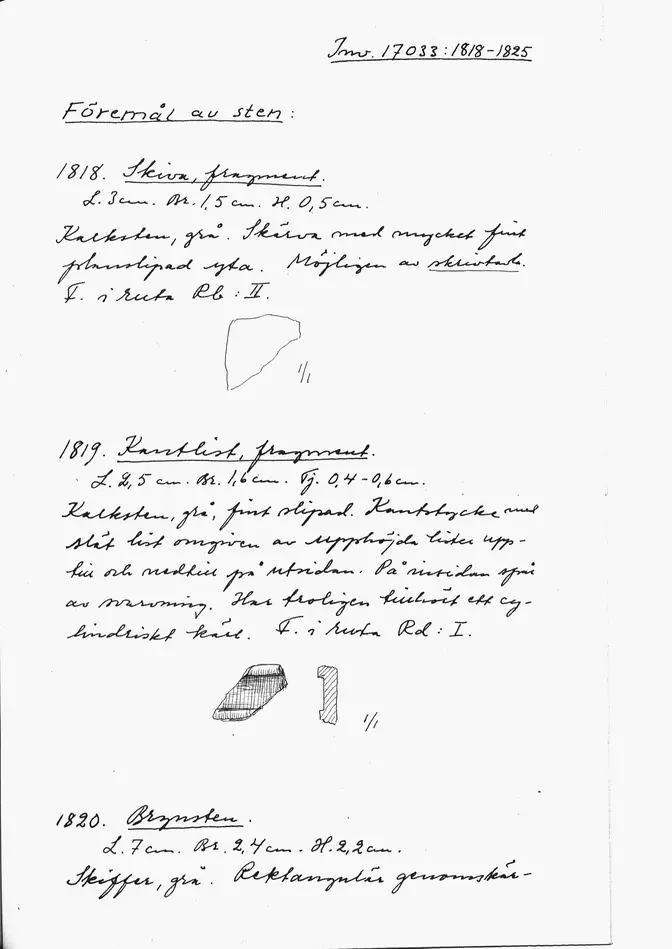 Inv. 17033:1818-1825
Föremål av sten:
1818. Skiva, fragment.
L. 3 cm. Br. 1,5 cm. H. 0,5 cm.
Kalksten, grå. Skärva med mycket fint
planslipad yta. Möjligen av skrivtavla.
F. i ruta Rb : II.
1/1
1819. Kantlist, fragment.
L. 2,5 cm. Br. 1,6 cm. Tj. 0,4-0,6 cm.
Kalksten, grå, fint slipad. Kantstycke med
slät list omgiven av upphöjda lister upp-
till och nedtill på utsidan. På insidan spår
av svarvning. Har troligen tillhört ett cy-
lindriskt kärl. F. i ruta Rd : I.
1/1
1820. Brynsten.
L. 7 cm. Br. 2,4 cm. H. 2,2 cm.
Skiffer, grå. Rektangulär genomskär-